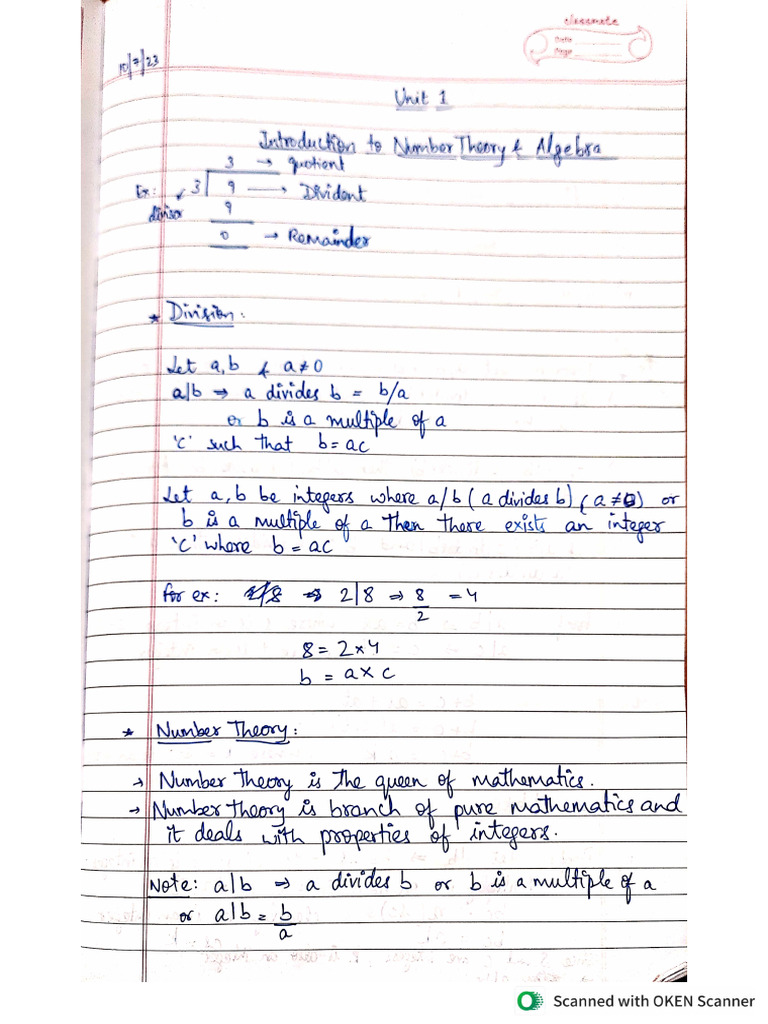 classmate
Date
Page
10/7/23
Unit 1
Introduction to Number Theory & Algebra
3 → quotient
Ex: 3 9 → Divident
divisor 9
0 → Remainder
* Division:
Let a,b & a≠0
a|b ⇒ a divides b = b/a
or b is a multiple of a
'c' such that b=ac
Let a,b be integers where a/b (a divides b) (a≠0) or
b is a multiple of a then there exists an integer
'c' where b=ac
for ex: 2|8 ⇒ 8/2 = 4
8 = 2×4
b = a×c
* Number Theory:
→ Number Theory is the queen of mathematics.
→ Number theory is branch of pure mathematics and
it deals with properties of integers.
Note: a|b ⇒ a divides b or b is a multiple of a
or a|b = b/a
Scanned with OKEN Scanner